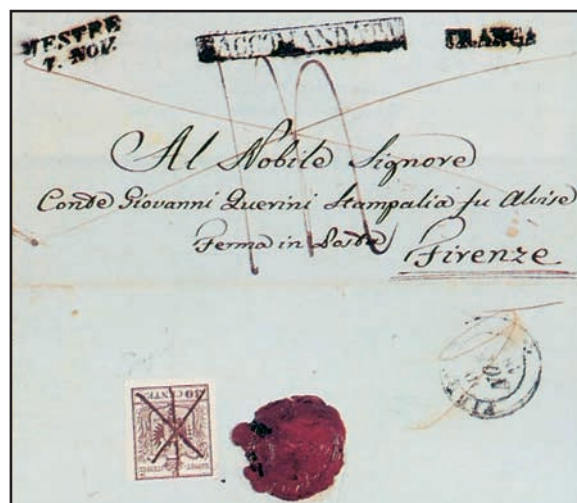 MESTRE
7. NOV.
RACCOMANDATA
FRANCA
Al Nobile Signore
Conte Giovanni Querini Stampalia fu Alvise
Ferma in Posta
Firenze
30 CENTES